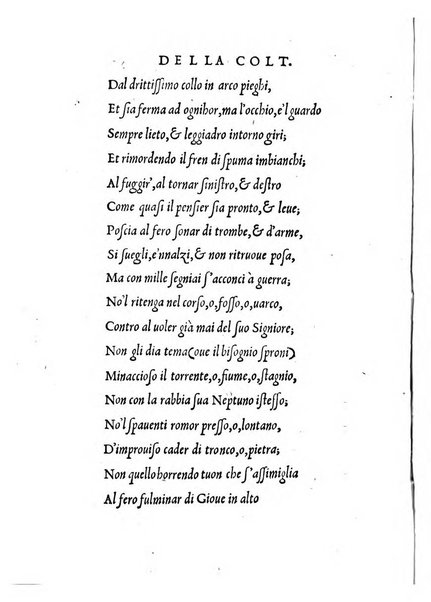 DELLA COLT.
Dal drittiſſimo collo in arco pieghi,
Et ſia ferma ad ognihor, ma l'occhio, e'l guardo
Sempre lieto, & leggiadro intorno giri;
Et rimordendo il fren di ſpuma imbianchi;
Al fuggir', al tornar ſiniſtro, & deſtro
Come quaſi il penſier ſia pronto, & leue;
Poſcia al fero ſonar di trombe, & d'arme,
Si ſuegli, e'nnalzi, & non ritruoue poſa,
Ma con mille ſegniai s'acconci à guerra;
No'l ritenga nel corſo, o, foſſo, o, uarco,
Contro al uoler già mai del ſuo Signiore;
Non gli dia tema (oue il biſognio ſproni)
Minaccioſo il torrente, o, fiume, o, ſtagnio,
Non con la rabbia ſua Neptuno iſteſſo;
No'l ſpauenti romor preſſo, o, lontano,
D'improuiſo cader di tronco, o, pietra;
Non quello horrendo tuon che s'aſſimiglia
Al fero fulminar di Gioue in alto